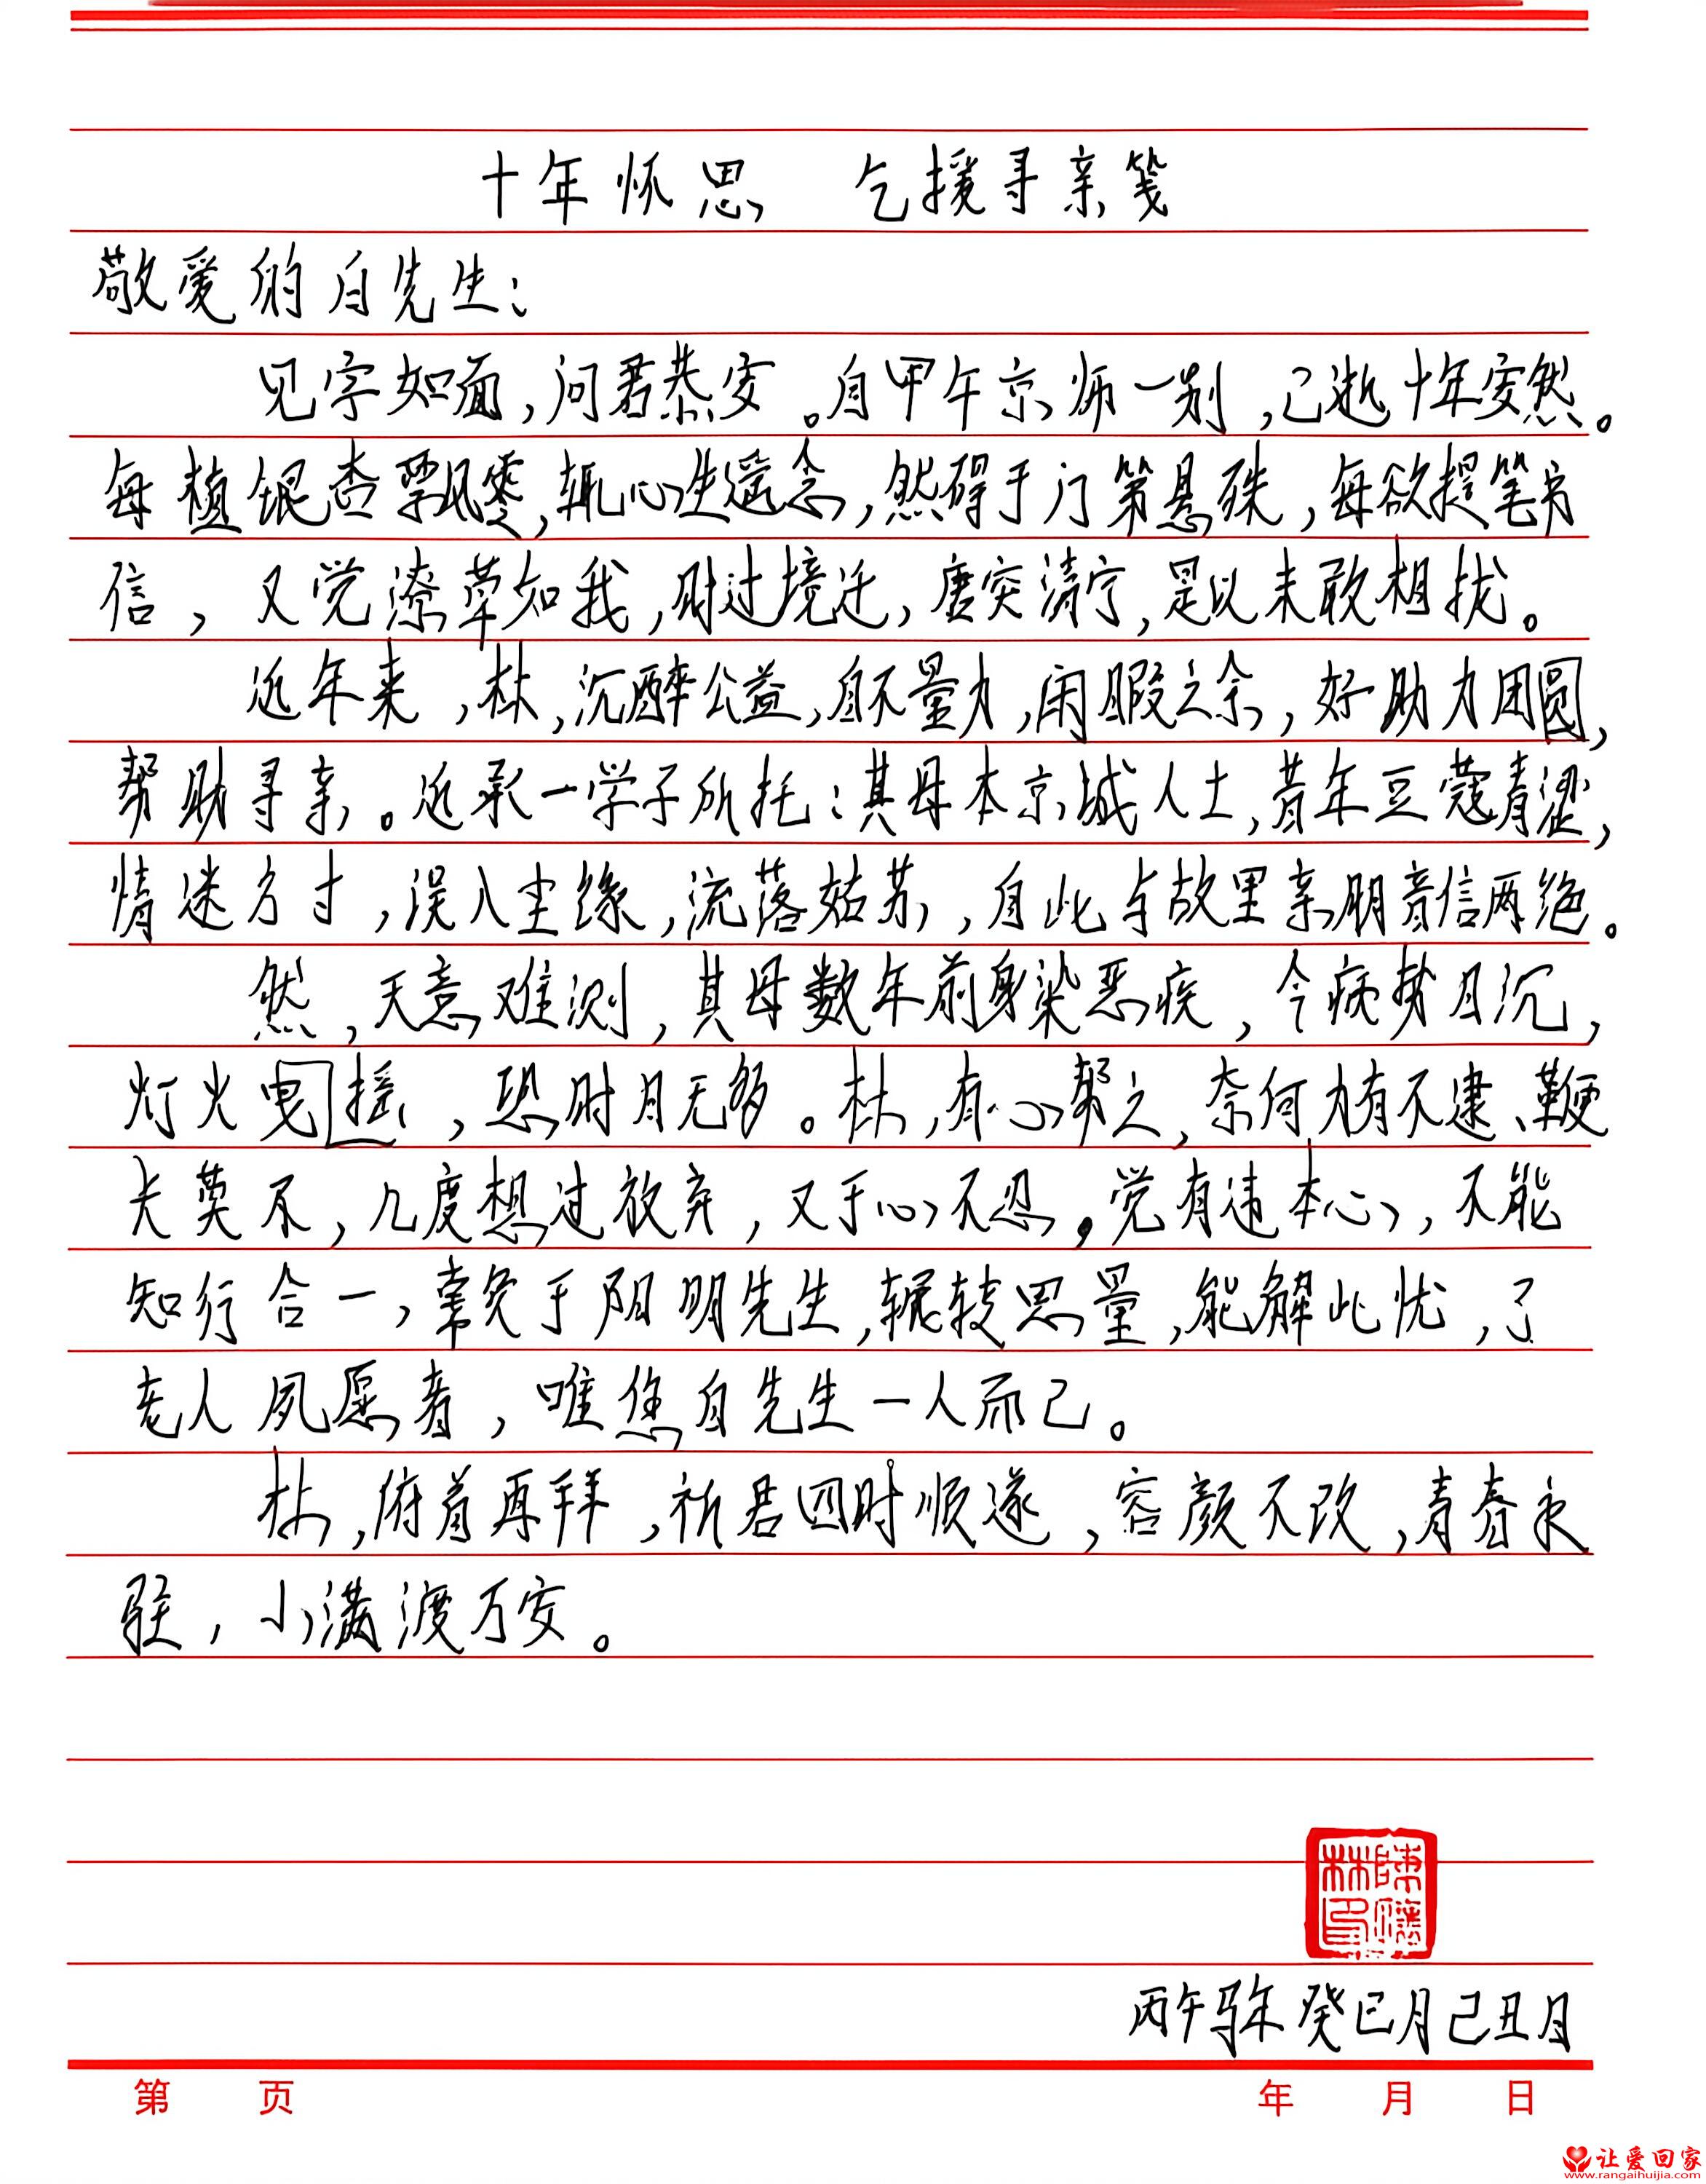 十年怀思 乞援寻亲笺
敬爱的白先生：
见字如面，问君恭安。自甲午京师一别，已逝十年安然。
每植银杏飘零，辄心生遥念，然碍于门第悬殊，每欲提笔书
信，又觉潦草如我，时过境迁，唐突清宁，是以未敢相扰。
近年来，林，沉醉公益，自不量力，闲暇之余，好助力团圆，
帮助寻亲。近承一学子所托：其母本京城人士，昔年豆蔻青涩，
情迷方寸，误入尘缘，流落姑苏，自此与故里亲朋音信两绝。
然，天意难测，其母数年前身染恶疾，今病势日沉，
灯火曳摇，恐时月无多。林，有心帮之，奈何力有不逮、鞭
长莫及，几度想过放弃，又于心不忍，觉有违本心，不能
知行合一，常负于阳明先生，辗转思量，能解此忧，了
老人夙愿者，唯您白先生一人而已。
林，俯首再拜，祈君四时顺遂，容颜不改，青春永
驻，小满渡万安。
丙午马年癸巳月己丑日
第 页 年 月 日
让爱回家
www.rangaihuijia.com